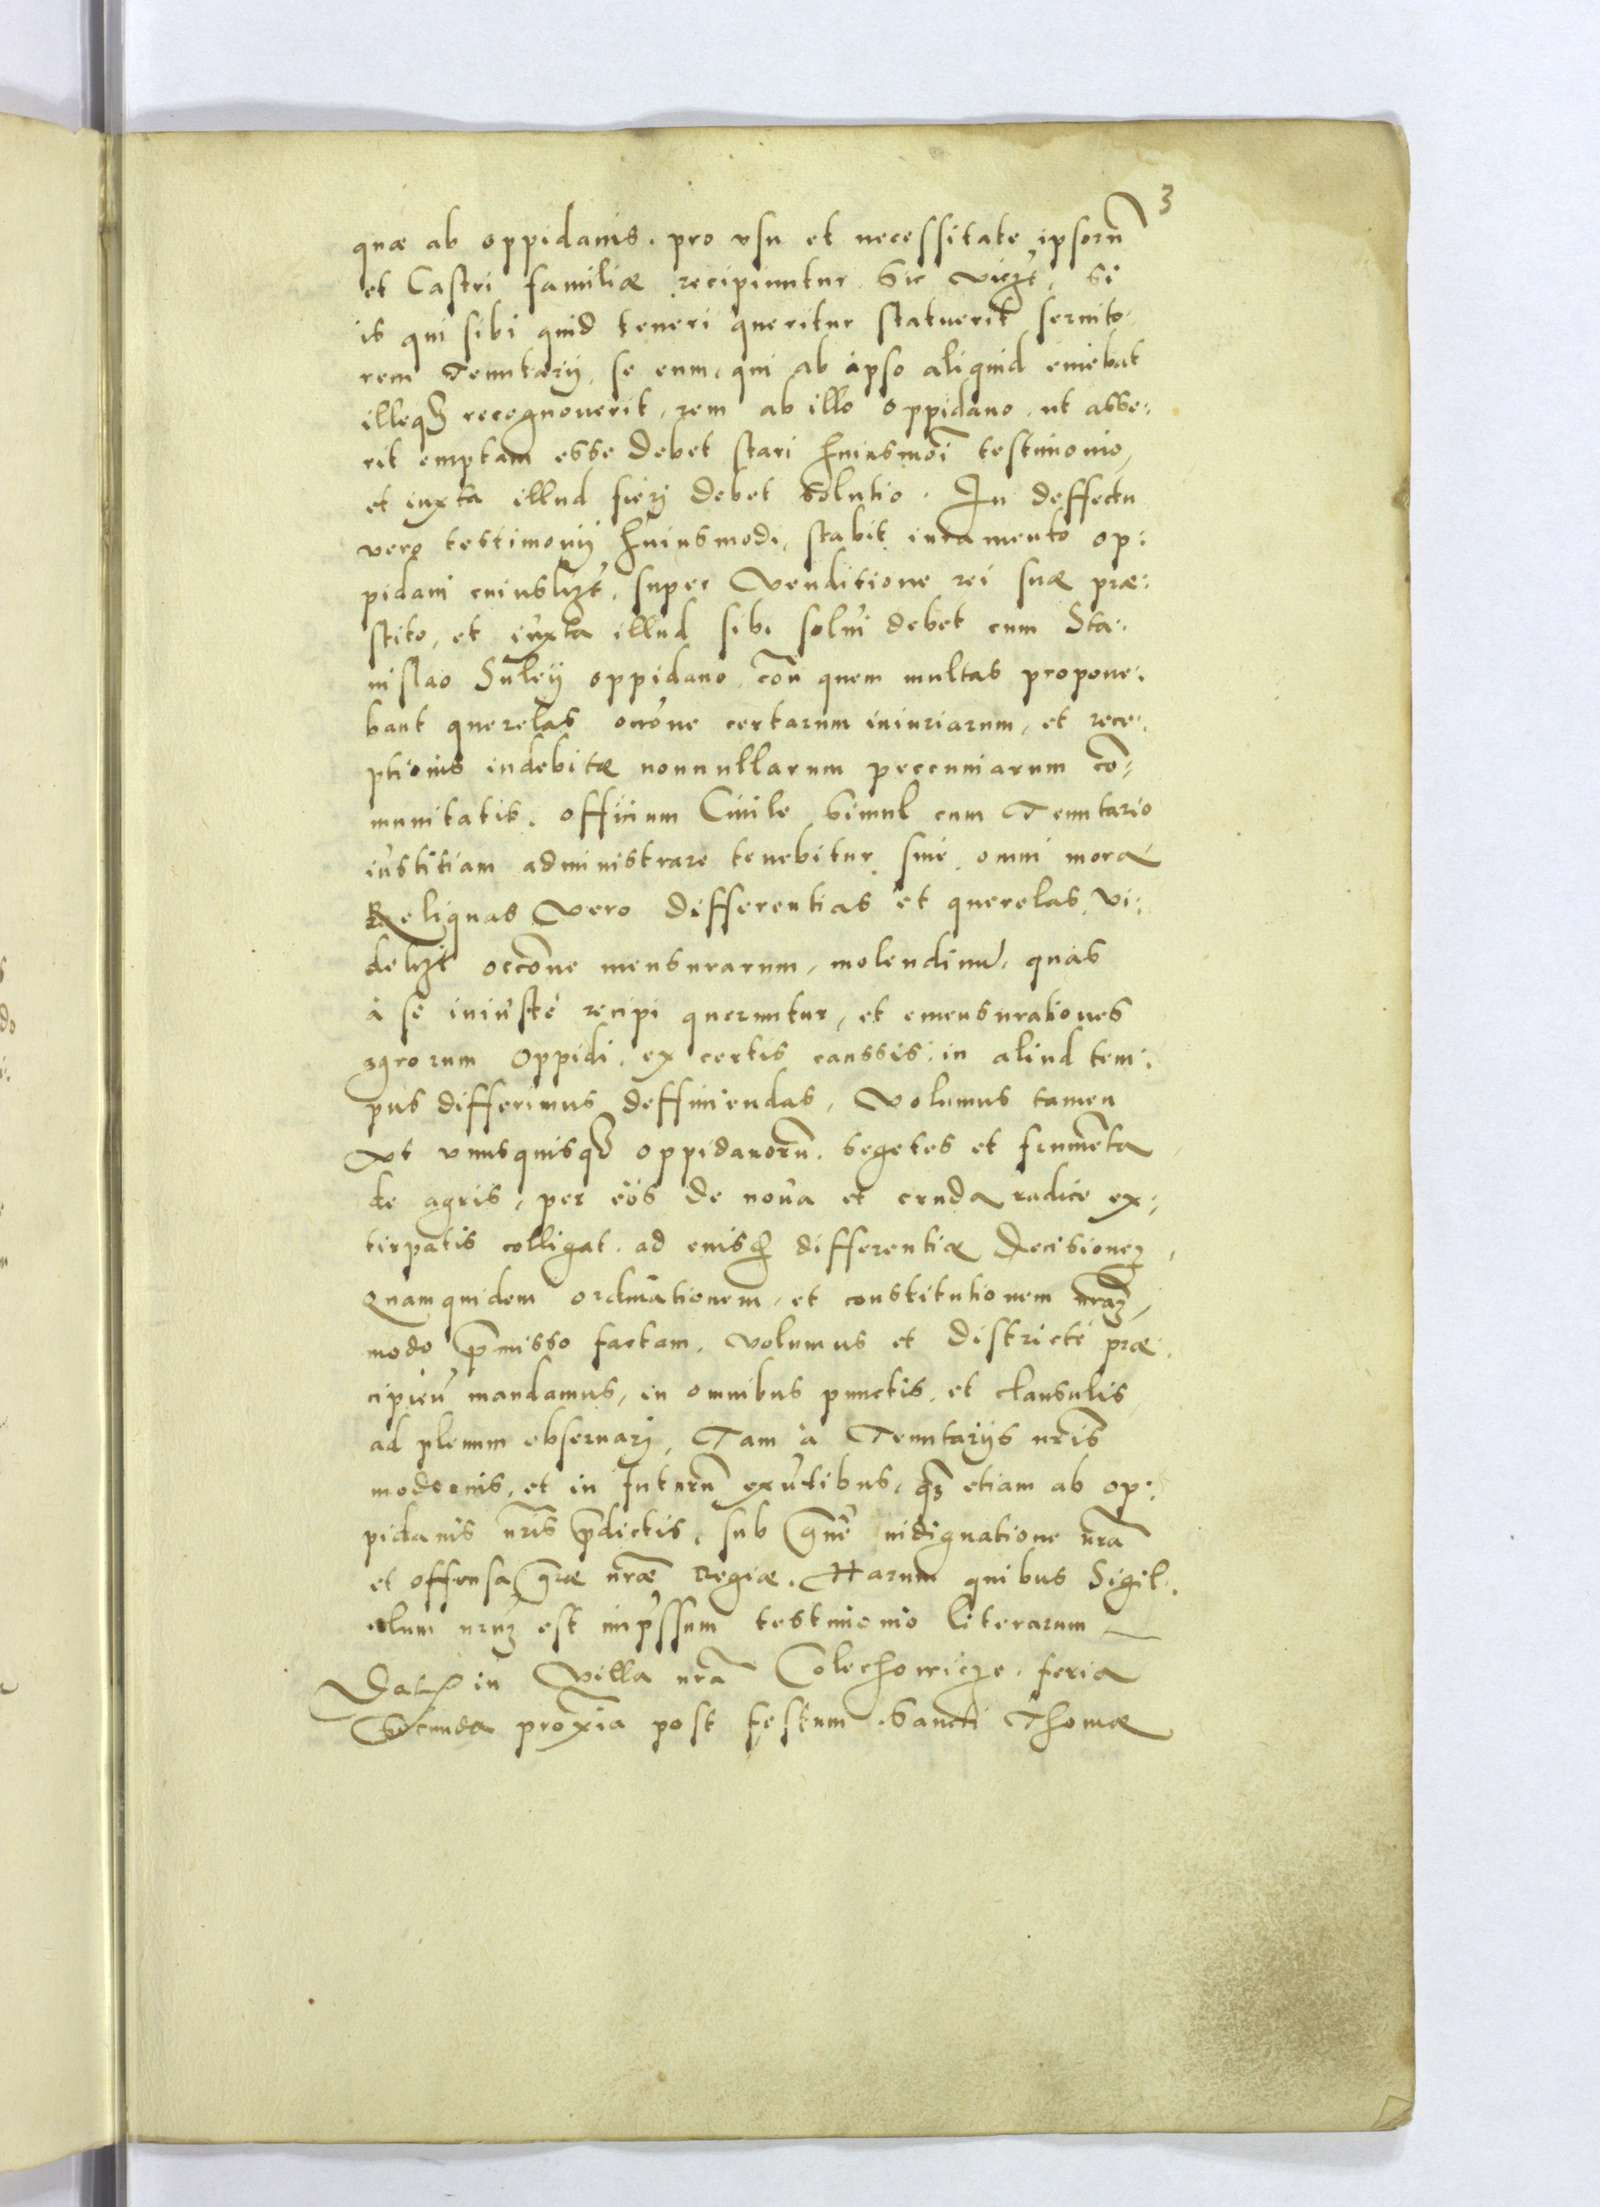 3
quæ ab oppidanis. pro vsu et necessitate ipsorū
et Castri familiæ recipiuntur. Sic vidzt, Si
is qui sibi quid teneri queritur statuerit seruito-
rem Tenutarij, se eum, qui ab ipso aliquid emebat
illeq₃ recognouerit, rem ab illo oppidano, ut asse:
rit emptam esse debet stari huiusmoi testimonio,
et iuxta illud fieri debet solutio. In deffectu
vero testimonij huiusmodi, stabit iuramento op:
pidani cuiuslizt, super venditione rei suæ præ:
stito, et iuxta illud sibi solui debet cum Sta:
nislao Suleij oppidano, cōn quem multas propone:
bant querelas occōne certarum iniuriarum, et rece:
ptionis indebitæ nonnullarum peccuniarum cō:
munitatis. Officium Ciuile simul cum Tenutario
iustitiam administrare tenebitur, sine omni mora
Reliquas vero differentias et querelas, vi:
delizt occōne mensurarum, molendinū, quas
à se iniustè recipi queruntur, et emensurationes
agrorum oppidi, ex certis caussis, in aliud tem:
pus differimus deffiniendas, Volumus tamen
Vt vnusquisq₃ oppidanorū, segetes et frumēta
de agris, per eos de noua et cruda radice ex:
tirpatis colligat, ad eiusq₃ differentiæ Decisionem,
Quamquidem ordinationem, et constitutionem nrā₃,
modo p̄misso factam, volumus et districtè præ:
cipien̄ mandamus, in omnibus punctis, et clausulis
ad plenum obseruari, Tam à Tenutarijs nr̄is
modernis, et in futurū exn̄tibus, q̄₃ etiam ab op:
pidanis nr̄is p̄dictis, sub indignatione nrā
et offensa grae nræ Regiæ. Harum quibus Sigil:
lum nrū₃ est imp̄ssum testimonio literarum
Dat in Villa nrā Colechowicze, feria
Secunda proxīa post festum Sancti Thomæ